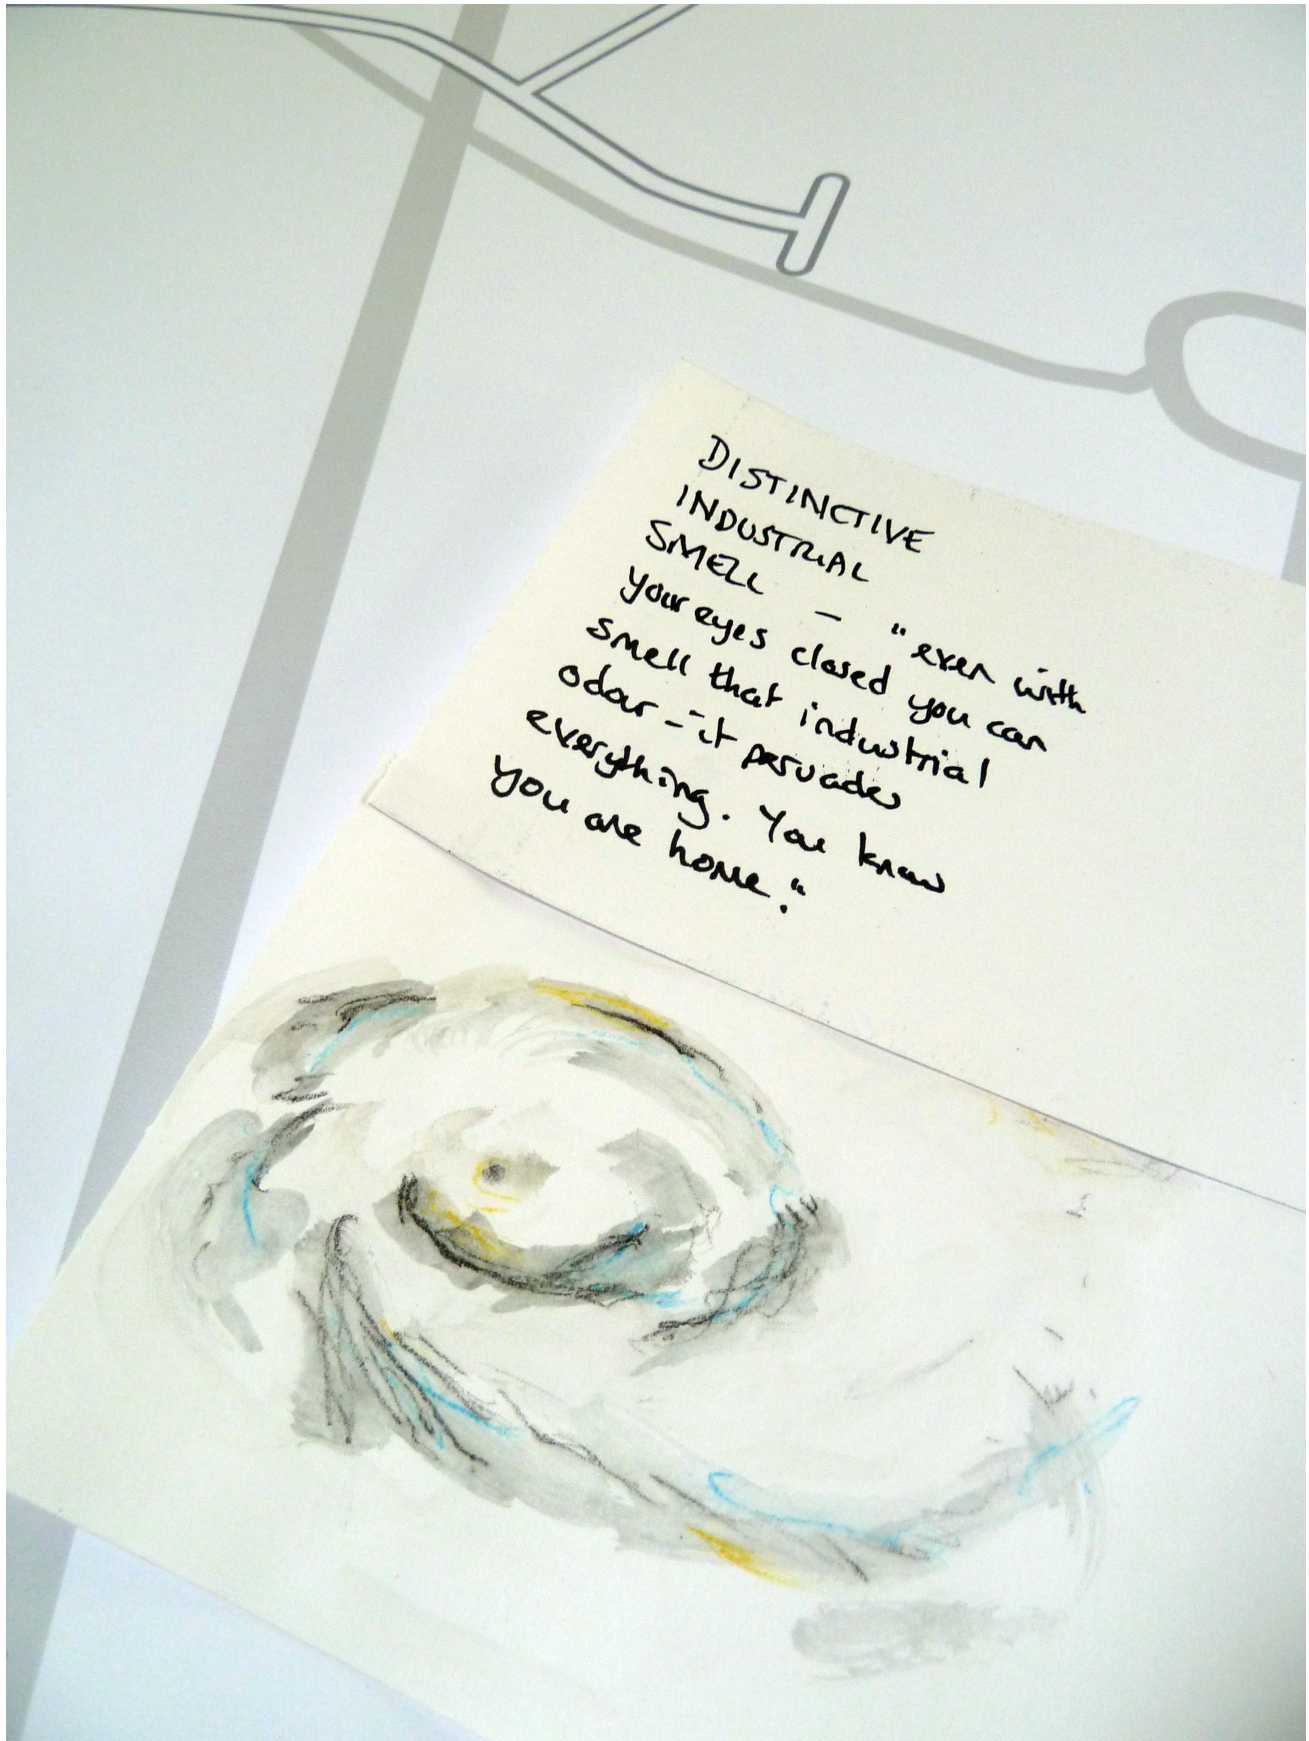 DISTINCTIVE
INDUSTRIAL
SMELL - "even with
your eyes closed you can
smell that industrial
odour - it persuades
everything. You know
you are home."